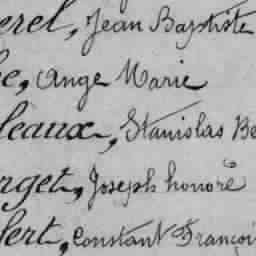 erel, Jean Baptiste
e, Ange Marie
leaux, Stanislas Be
rget, Joseph honoré
bert, Constant Françoi